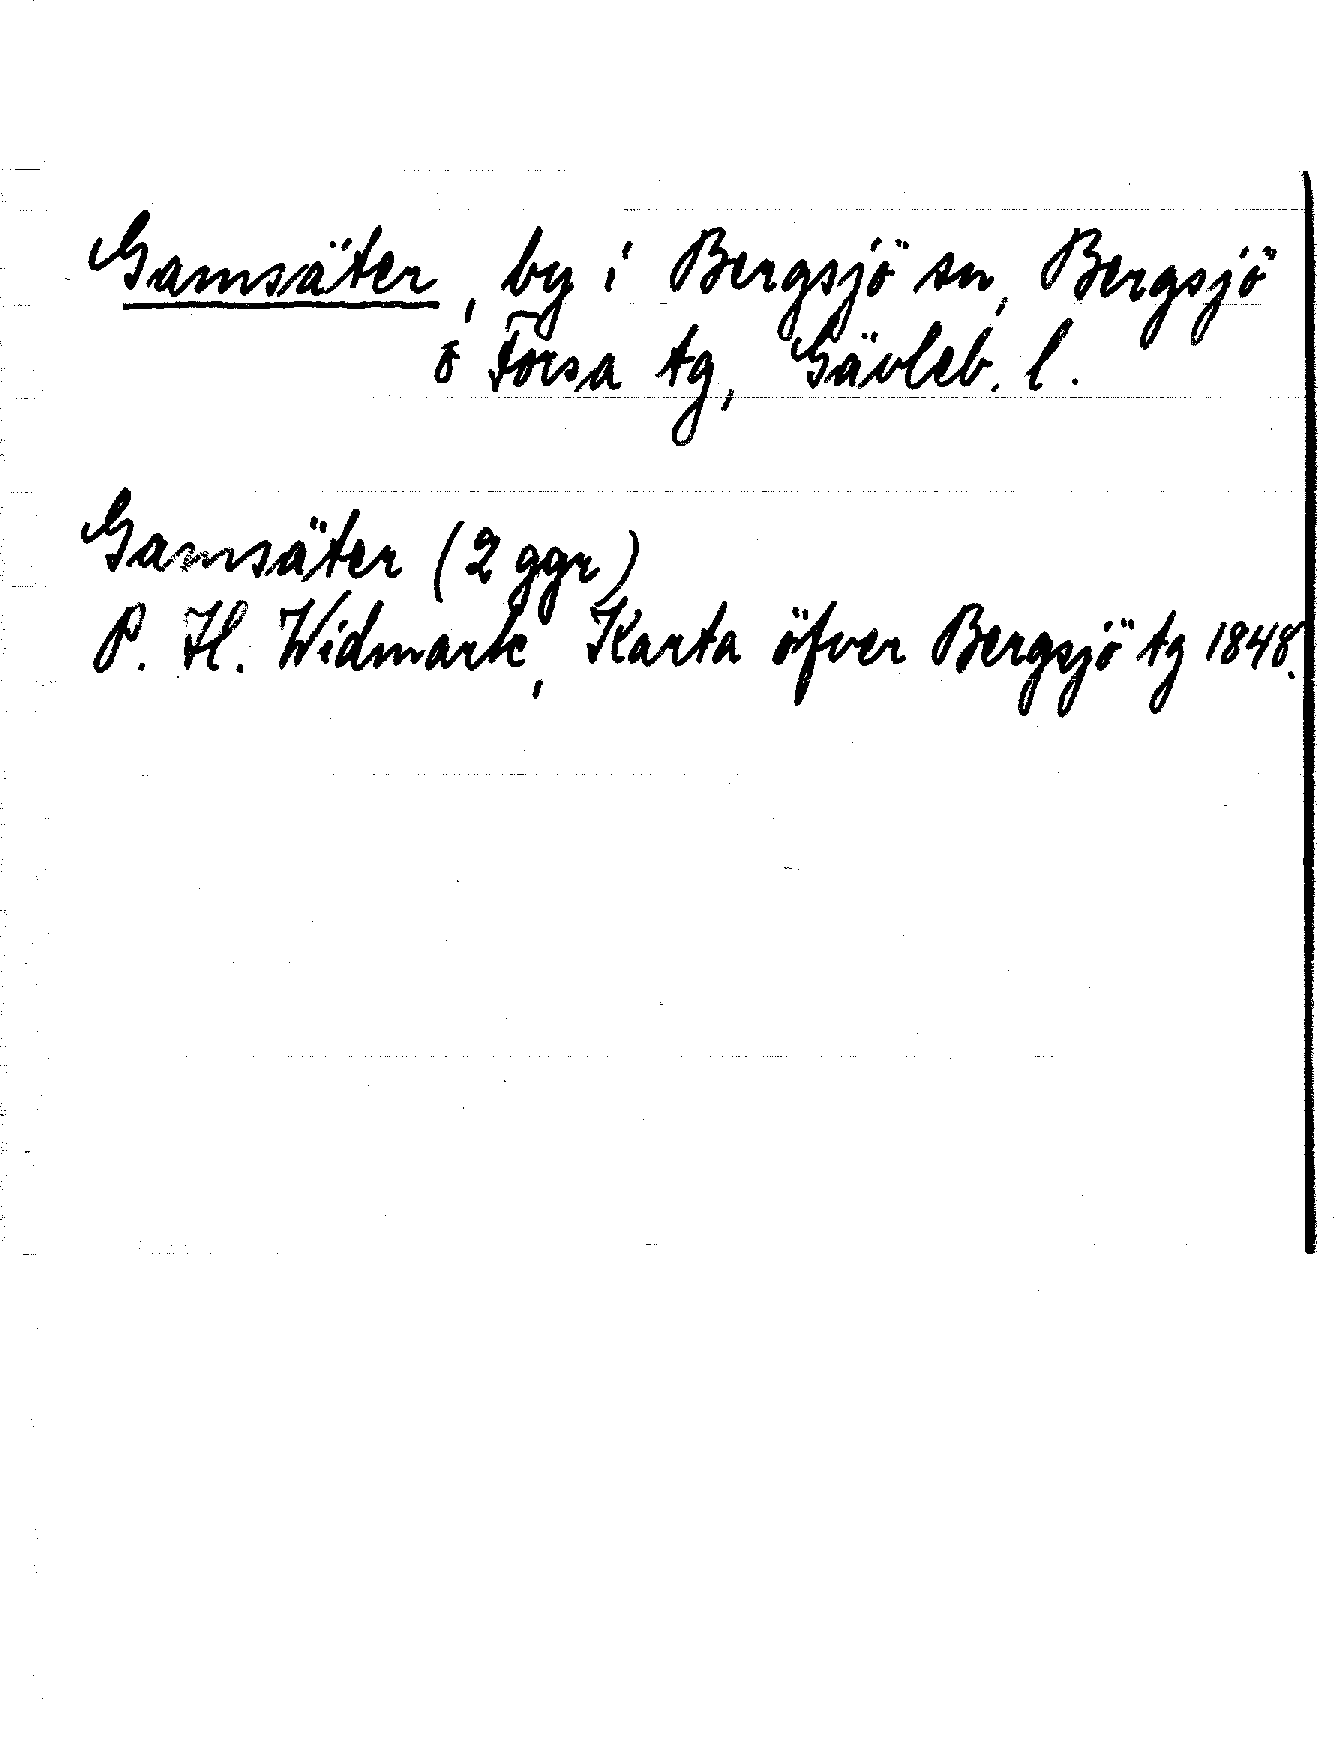 Gamsäter, by i Bergsjö sn, Bergsjö
o Forsa tg, Gävleb. l.
Gamsäter (2 ggr)
P. H. Widmark, Karta öfver Bergsjö tg 1848.